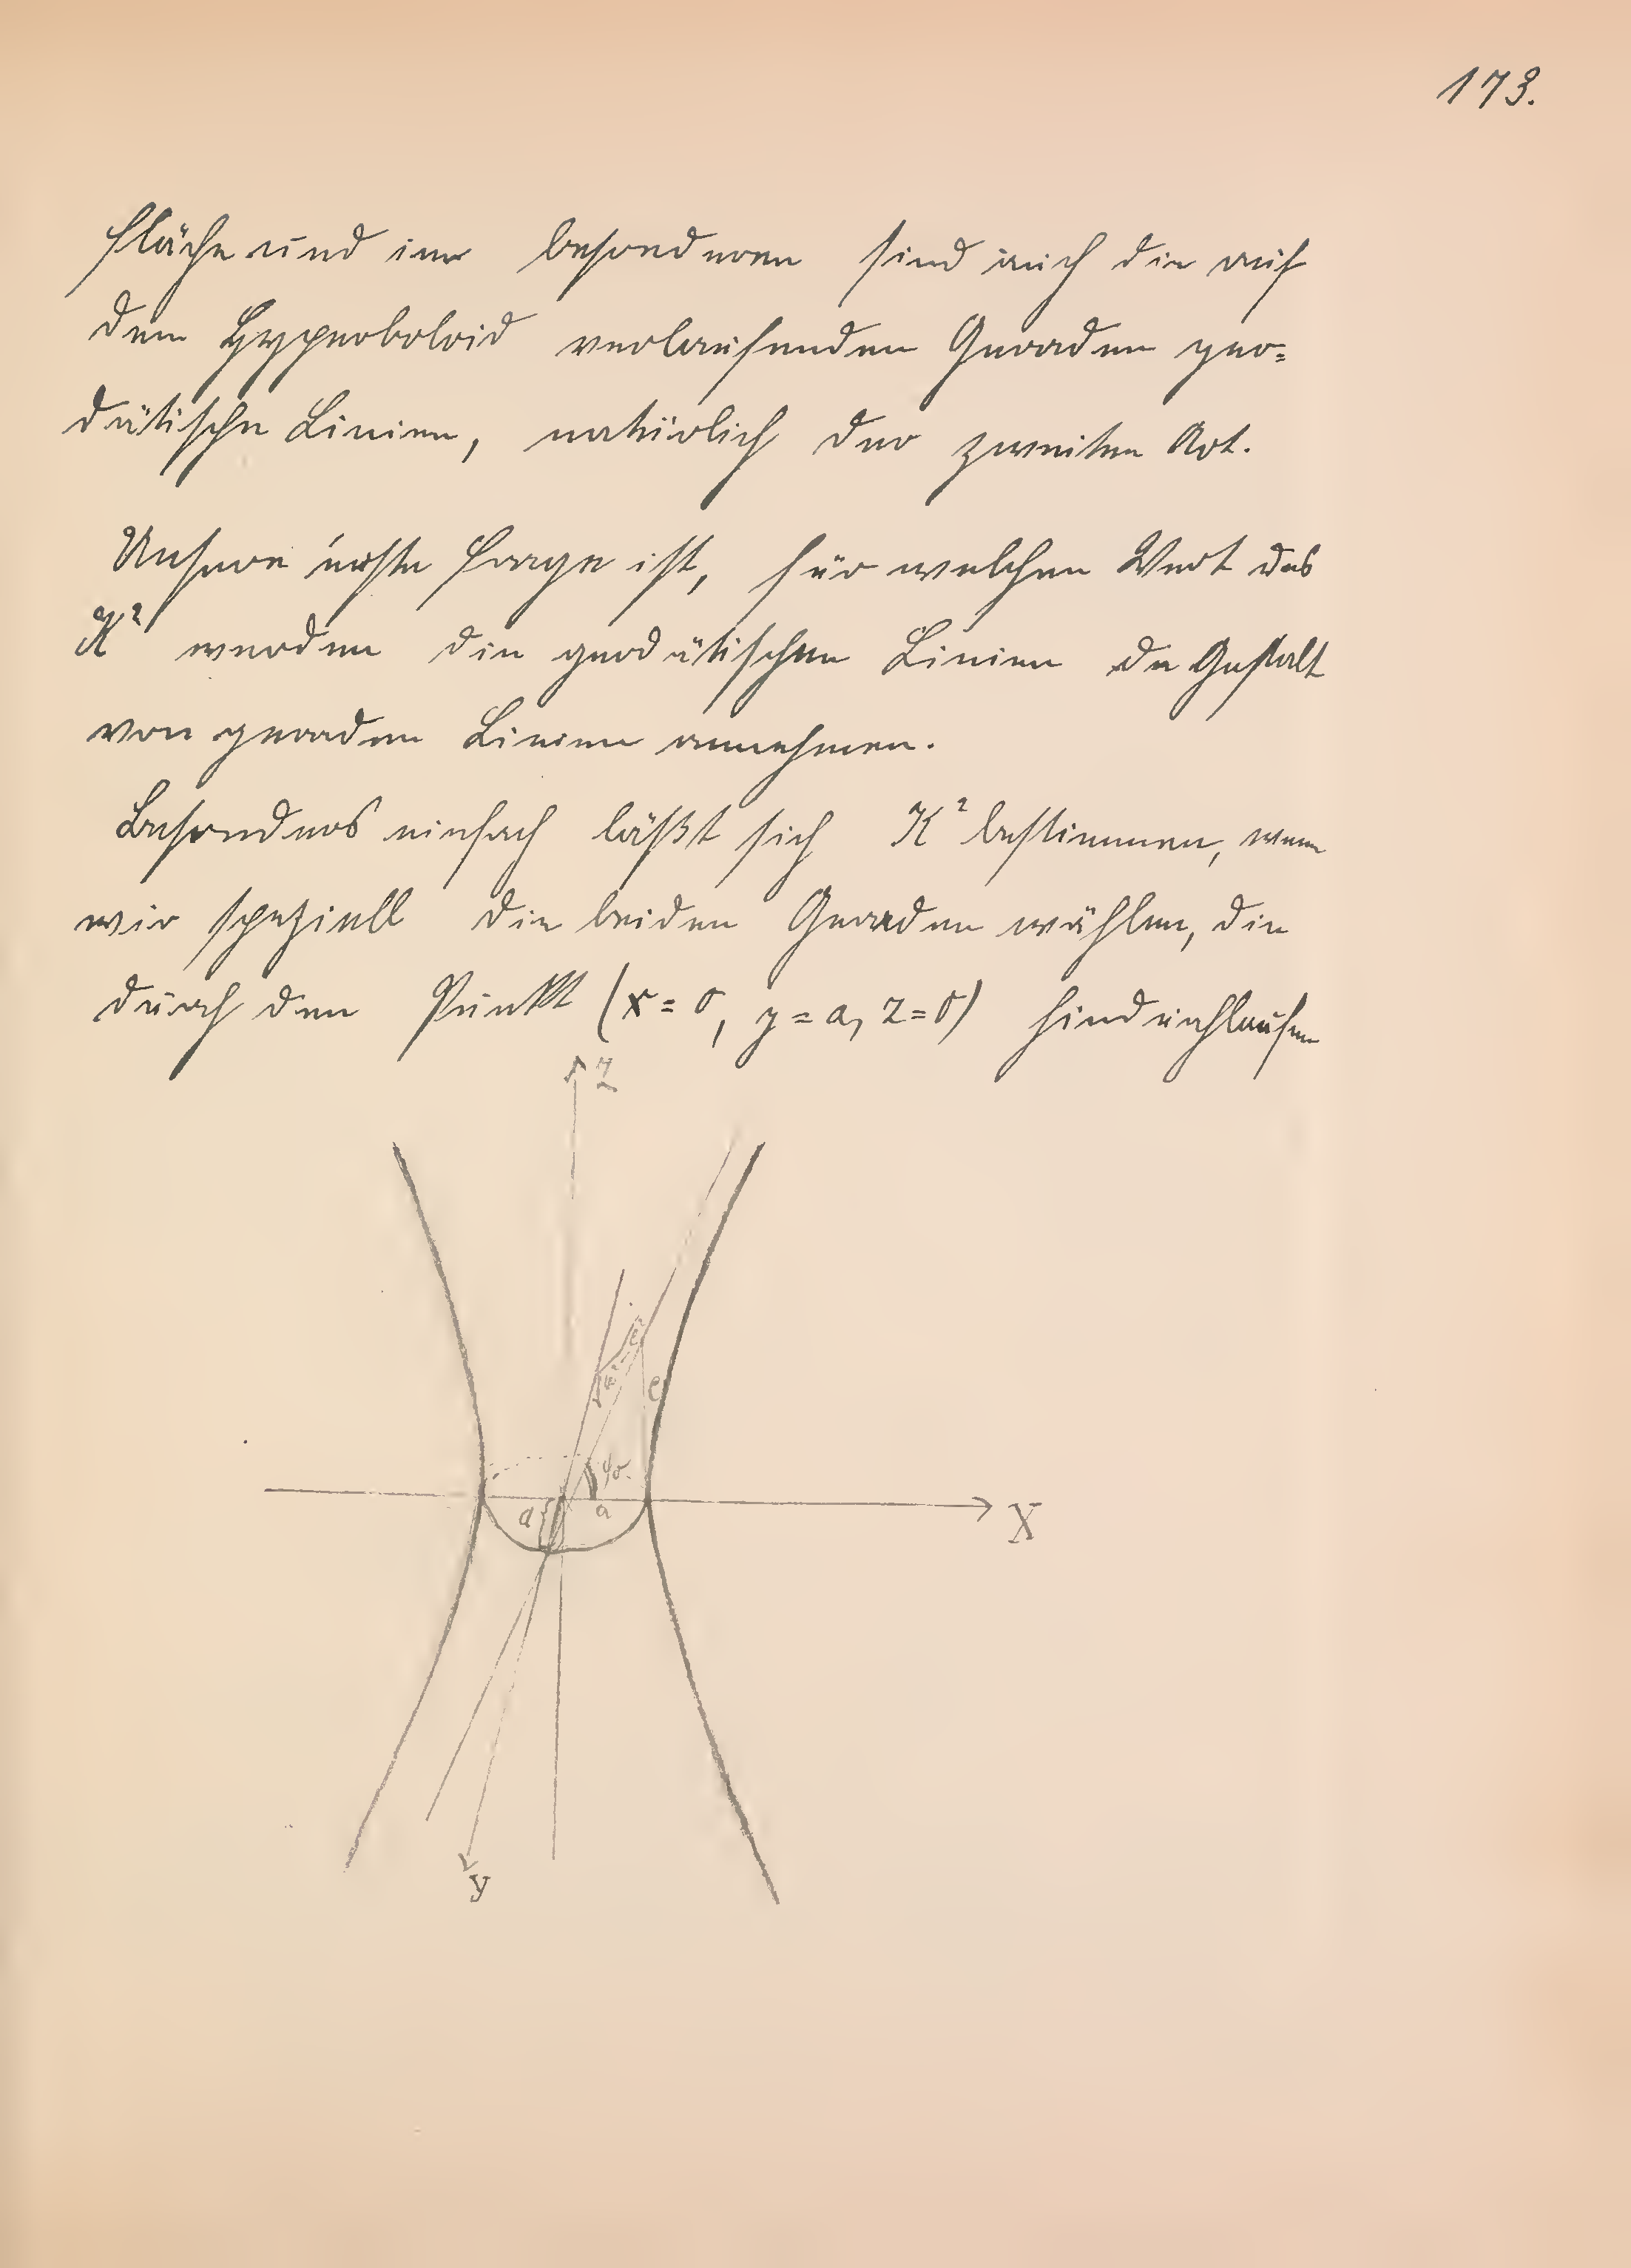 173.
Fläche und im besonderen sind auch die auf
dem Hyperboloid verlaufenden Geraden geo=
dätische Linien, natürlich der zweiten Art.
Unsere erste Frage ist, für welchen Wert des
K² werden die geodätischen Linien die Gestalt
von geraden Linien annehmen.
Besonders einfach läßt sich K² bestimmen, wenn
wir speziell die beiden Geraden wählen, die
durch den Punkt (x = 0, y = a, z = 0) hindurchlaufen
Z
c
φ₀
a
a
X
y